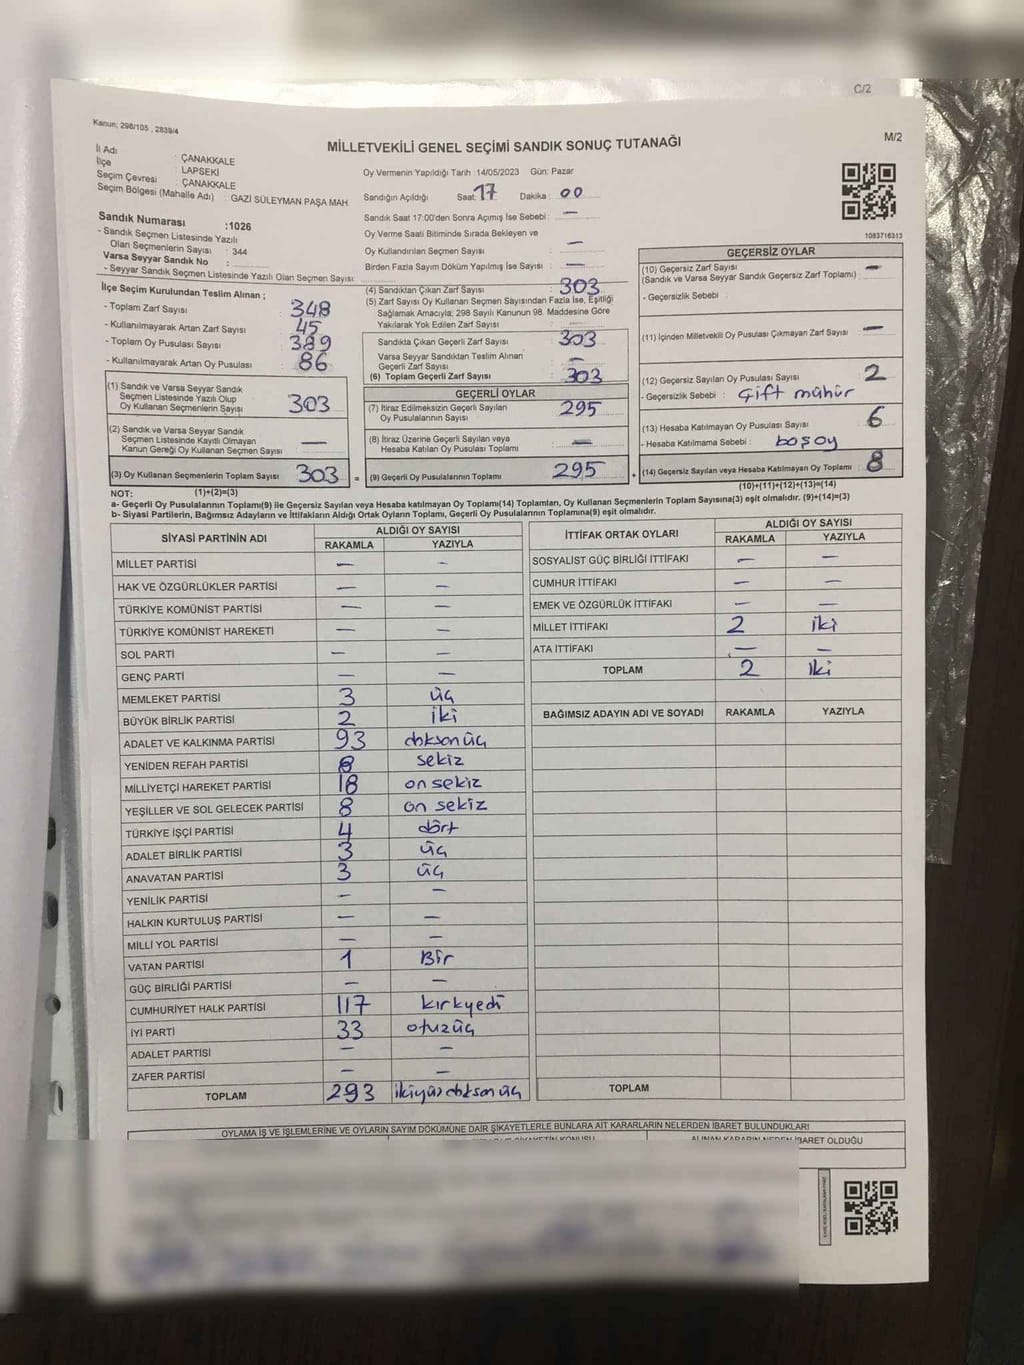 C/2
Kanun: 298/105 , 2839/4
M/2
MİLLETVEKİLİ GENEL SEÇİMİ SANDIK SONUÇ TUTANAĞI
İl Adı : ÇANAKKALE
İlçe : LAPSEKİ
Seçim Çevresi : ÇANAKKALE
Seçim Bölgesi (Mahalle Adı) : GAZİ SÜLEYMAN PAŞA MAH.
Sandık Numarası :1026
- Sandık Seçmen Listesinde Yazılı
Olan Seçmenlerin Sayısı : 344
Varsa Seyyar Sandık No :
- Seyyar Sandık Seçmen Listesinde Yazılı Olan Seçmen Sayısı:
İlçe Seçim Kurulundan Teslim Alınan ;
- Toplam Zarf Sayısı : 348
- Kullanılmayarak Artan Zarf Sayısı : 45
- Toplam Oy Pusulası Sayısı : 389
- Kullanılmayarak Artan Oy Pusulası : 86
(1) Sandık ve Varsa Seyyar Sandık
Seçmen Listesinde Yazılı Olup
Oy Kullanan Seçmenlerin Sayısı : 303
(2) Sandık ve Varsa Seyyar Sandık
Seçmen Listesinde Kayıtlı Olmayan
Kanun Gereği Oy Kullanan Seçmen Sayısı : —
(3) Oy Kullanan Seçmenlerin Toplam Sayısı : 303 =
(1)+(2)=(3)
Oy Vermenin Yapıldığı Tarih : 14/05/2023 Gün: Pazar
Sandığın Açıldığı Saat: 17 Dakika : 00
Sandık Saat 17:00'den Sonra Açımış İse Sebebi : —
Oy Verme Saati Bitiminde Sırada Bekleyen ve
Oy Kullandırılan Seçmen Sayısı : —
Birden Fazla Sayım Döküm Yapılmış İse Sayısı : —
(4) Sandıktan Çıkan Zarf Sayısı : 303
(5) Zarf Sayısı Oy Kullanan Seçmen Sayısından Fazla İse, Eşitliği
Sağlamak Amacıyla; 298 Sayılı Kanunun 98. Maddesine Göre
Yakılarak Yok Edilen Zarf Sayısı :
Sandıkta Çıkan Geçerli Zarf Sayısı : 303
Varsa Seyyar Sandıktan Teslim Alınan
Geçerli Zarf Sayısı : —
(6) Toplam Geçerli Zarf Sayısı : 303
GEÇERLİ OYLAR
(7) İtiraz Edilmeksizin Geçerli Sayılan
Oy Pusulalarının Sayısı : 295
(8) İtiraz Üzerine Geçerli Sayılan veya
Hesaba Katılan Oy Pusulası Toplamı : —
(9) Geçerli Oy Pusulalarının Toplamı : 295 +
1083716313
GEÇERSİZ OYLAR
(10) Geçersiz Zarf Sayısı : —
(Sandık ve Varsa Seyyar Sandık Geçersiz Zarf Toplamı)
- Geçersizlik Sebebi :
(11) İçinden Milletvekili Oy Pusulası Çıkmayan Zarf Sayısı : —
(12) Geçersiz Sayılan Oy Pusulası Sayısı : 2
- Geçersizlik Sebebi : Çift mühür
(13) Hesaba Katılmayan Oy Pusulası Sayısı : 6
- Hesaba Katılmama Sebebi : boş oy
(14) Geçersiz Sayılan veya Hesaba Katılmayan Oy Toplamı : 8
(10)+(11)+(12)+(13)=(14)
NOT:
a- Geçerli Oy Pusulalarının Toplamı(9) ile Geçersiz Sayılan veya Hesaba katılmayan Oy Toplamı(14) Toplamları, Oy Kullanan Seçmenlerin Toplam Sayısına(3) eşit olmalıdır. (9)+(14)=(3)
b- Siyasi Partilerin, Bağımsız Adayların ve İttifakların Aldığı Ortak Oyların Toplamı, Geçerli Oy Pusulalarının Toplamına(9) eşit olmalıdır.
SİYASİ PARTİNİN ADI ALDIĞI OY SAYISI
RAKAMLA YAZIYLA
MİLLET PARTİSİ — —
HAK VE ÖZGÜRLÜKLER PARTİSİ — —
TÜRKİYE KOMÜNİST PARTİSİ — —
TÜRKİYE KOMÜNİST HAREKETİ — —
SOL PARTİ — —
GENÇ PARTİ — —
MEMLEKET PARTİSİ 3 üç
BÜYÜK BİRLİK PARTİSİ 2 iki
ADALET VE KALKINMA PARTİSİ 93 doksanüç
YENİDEN REFAH PARTİSİ 8 sekiz
MİLLİYETÇİ HAREKET PARTİSİ 18 on sekiz
YEŞİLLER VE SOL GELECEK PARTİSİ 8 on sekiz
TÜRKİYE İŞÇİ PARTİSİ 4 dört
ADALET BİRLİK PARTİSİ 3 üç
ANAVATAN PARTİSİ 3 üç
YENİLİK PARTİSİ — —
HALKIN KURTULUŞ PARTİSİ — —
MİLLİ YOL PARTİSİ — —
VATAN PARTİSİ 1 Bir
GÜÇ BİRLİĞİ PARTİSİ — —
CUMHURİYET HALK PARTİSİ 117 kırkyedi
İYİ PARTİ 33 otuzüç
ADALET PARTİSİ — —
ZAFER PARTİSİ — —
TOPLAM 293 ikiyüz doksan üç
İTTİFAK ORTAK OYLARI ALDIĞI OY SAYISI
RAKAMLA YAZIYLA
SOSYALİST GÜÇ BİRLİĞİ İTTİFAKI — —
CUMHUR İTTİFAKI — —
EMEK VE ÖZGÜRLÜK İTTİFAKI — —
MİLLET İTTİFAKI 2 iki
ATA İTTİFAKI — —
TOPLAM 2 iki
BAĞIMSIZ ADAYIN ADI VE SOYADI RAKAMLA YAZIYLA
TOPLAM
OYLAMA İŞ VE İŞLEMLERİNE VE OYLARIN SAYIM DÖKÜMÜNE DAİR ŞİKAYETLERLE BUNLARA AİT KARARLARIN NELERDEN İBARET BULUNDUKLARI
ALINAN KARARIN NEDEN İBARET OLDUĞU